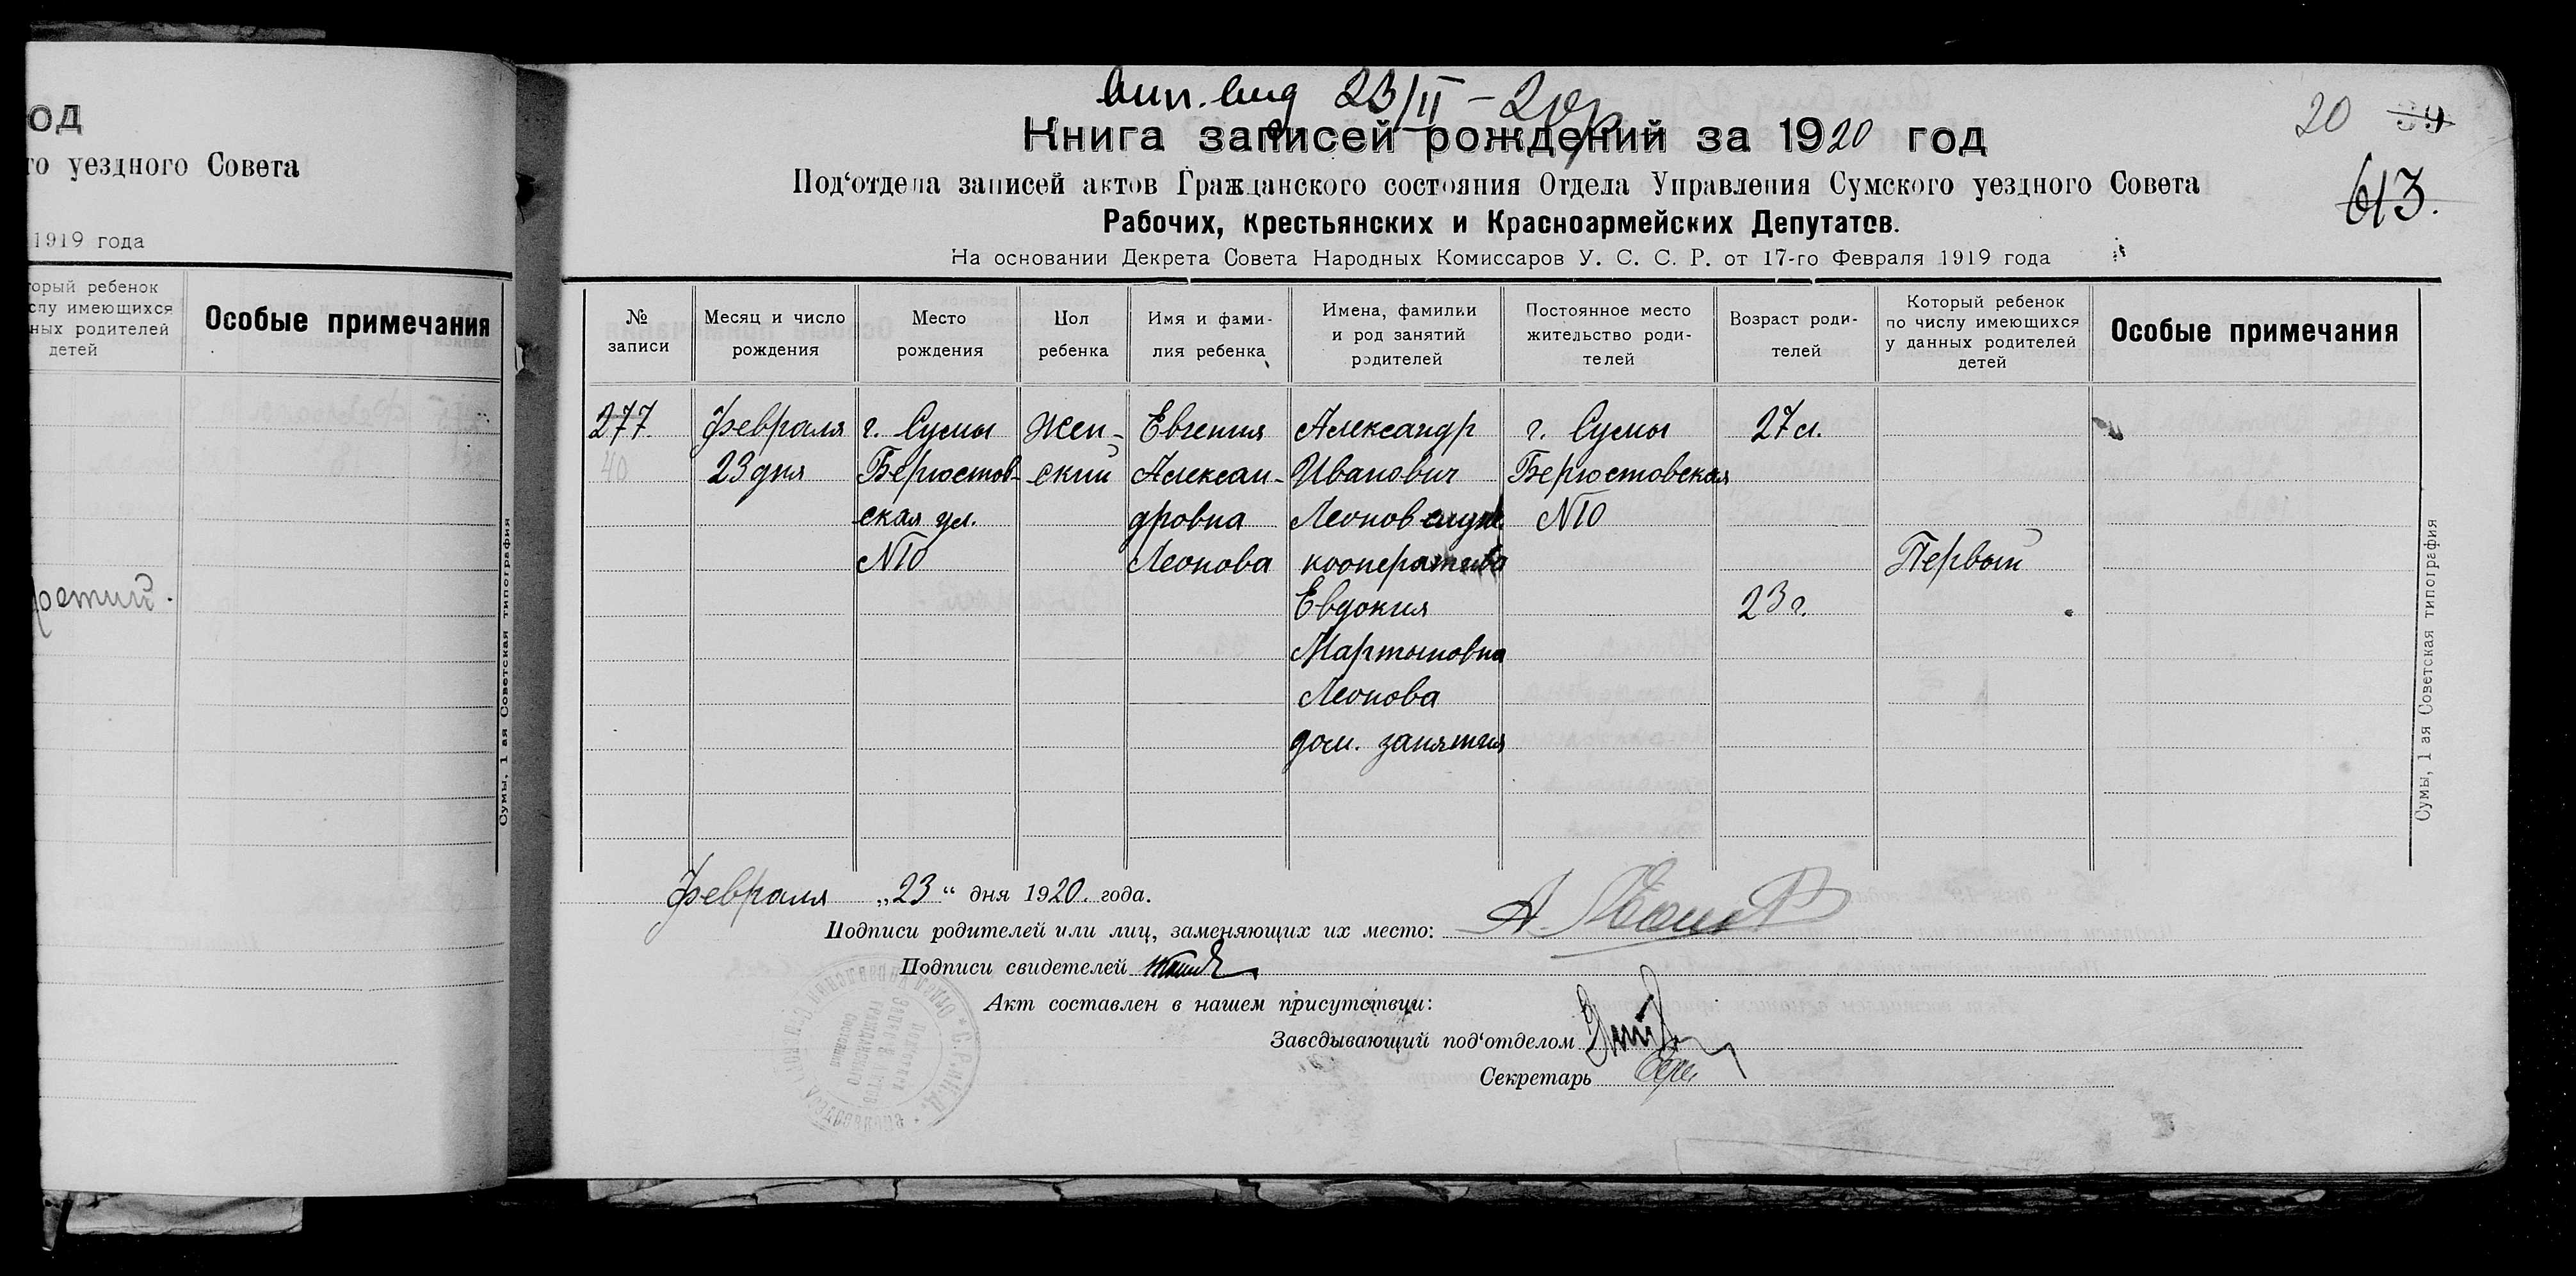 од
го уездного Совета
1919 года
торый ребенок
слу имеющихся
ных родителей
детей
Особые примечания
ретий.
Сумы, 1 ая Советская типография
Вып. вид 23/II – 20 г.
Книга записей рождений за 1920 год
20 39
613.
Под‘отдела записей актов Гражданского состояния Отдела Управления Сумского уездного Совета
Рабочих, Крестьянских и Красноармейских Депутатов.
На основании Декрета Совета Народных Комиссаров У. С. С. Р. от 17-го Февраля 1919 года
№ записи
Месяц и число рождения
Место рождения
Пол ребенка
Имя и фами-
лия ребенка
Имена, фамилии
и род занятий
родителей
Постоянное место
жительство роди-
телей
Возраст роди-
телей
Который ребенок
по числу имеющихся
у данных родителей
детей
Особые примечания
277
40
Февраля
23 дня
г. Сумы
Берюстов-
ская ул.
№10
Жен-
ский
Евгения
Алексан-
дровна
Леонова
Александр
Иванович
Леонов служ.
кооператива
Евдокия
Мартыновна
Леонова
дом. занятия
г. Сумы
Берюстовская
№10
27 л.
23 г.
Первый
Сумы, 1 ая Советская типография
Февраля „23“ дня 1920. года.
Подписи родителей или лиц, заменяющих их место:
Подписи свидетелей
Акт составлен в нашем присутствии:
Заведывающий под‘отделом
Секретарь